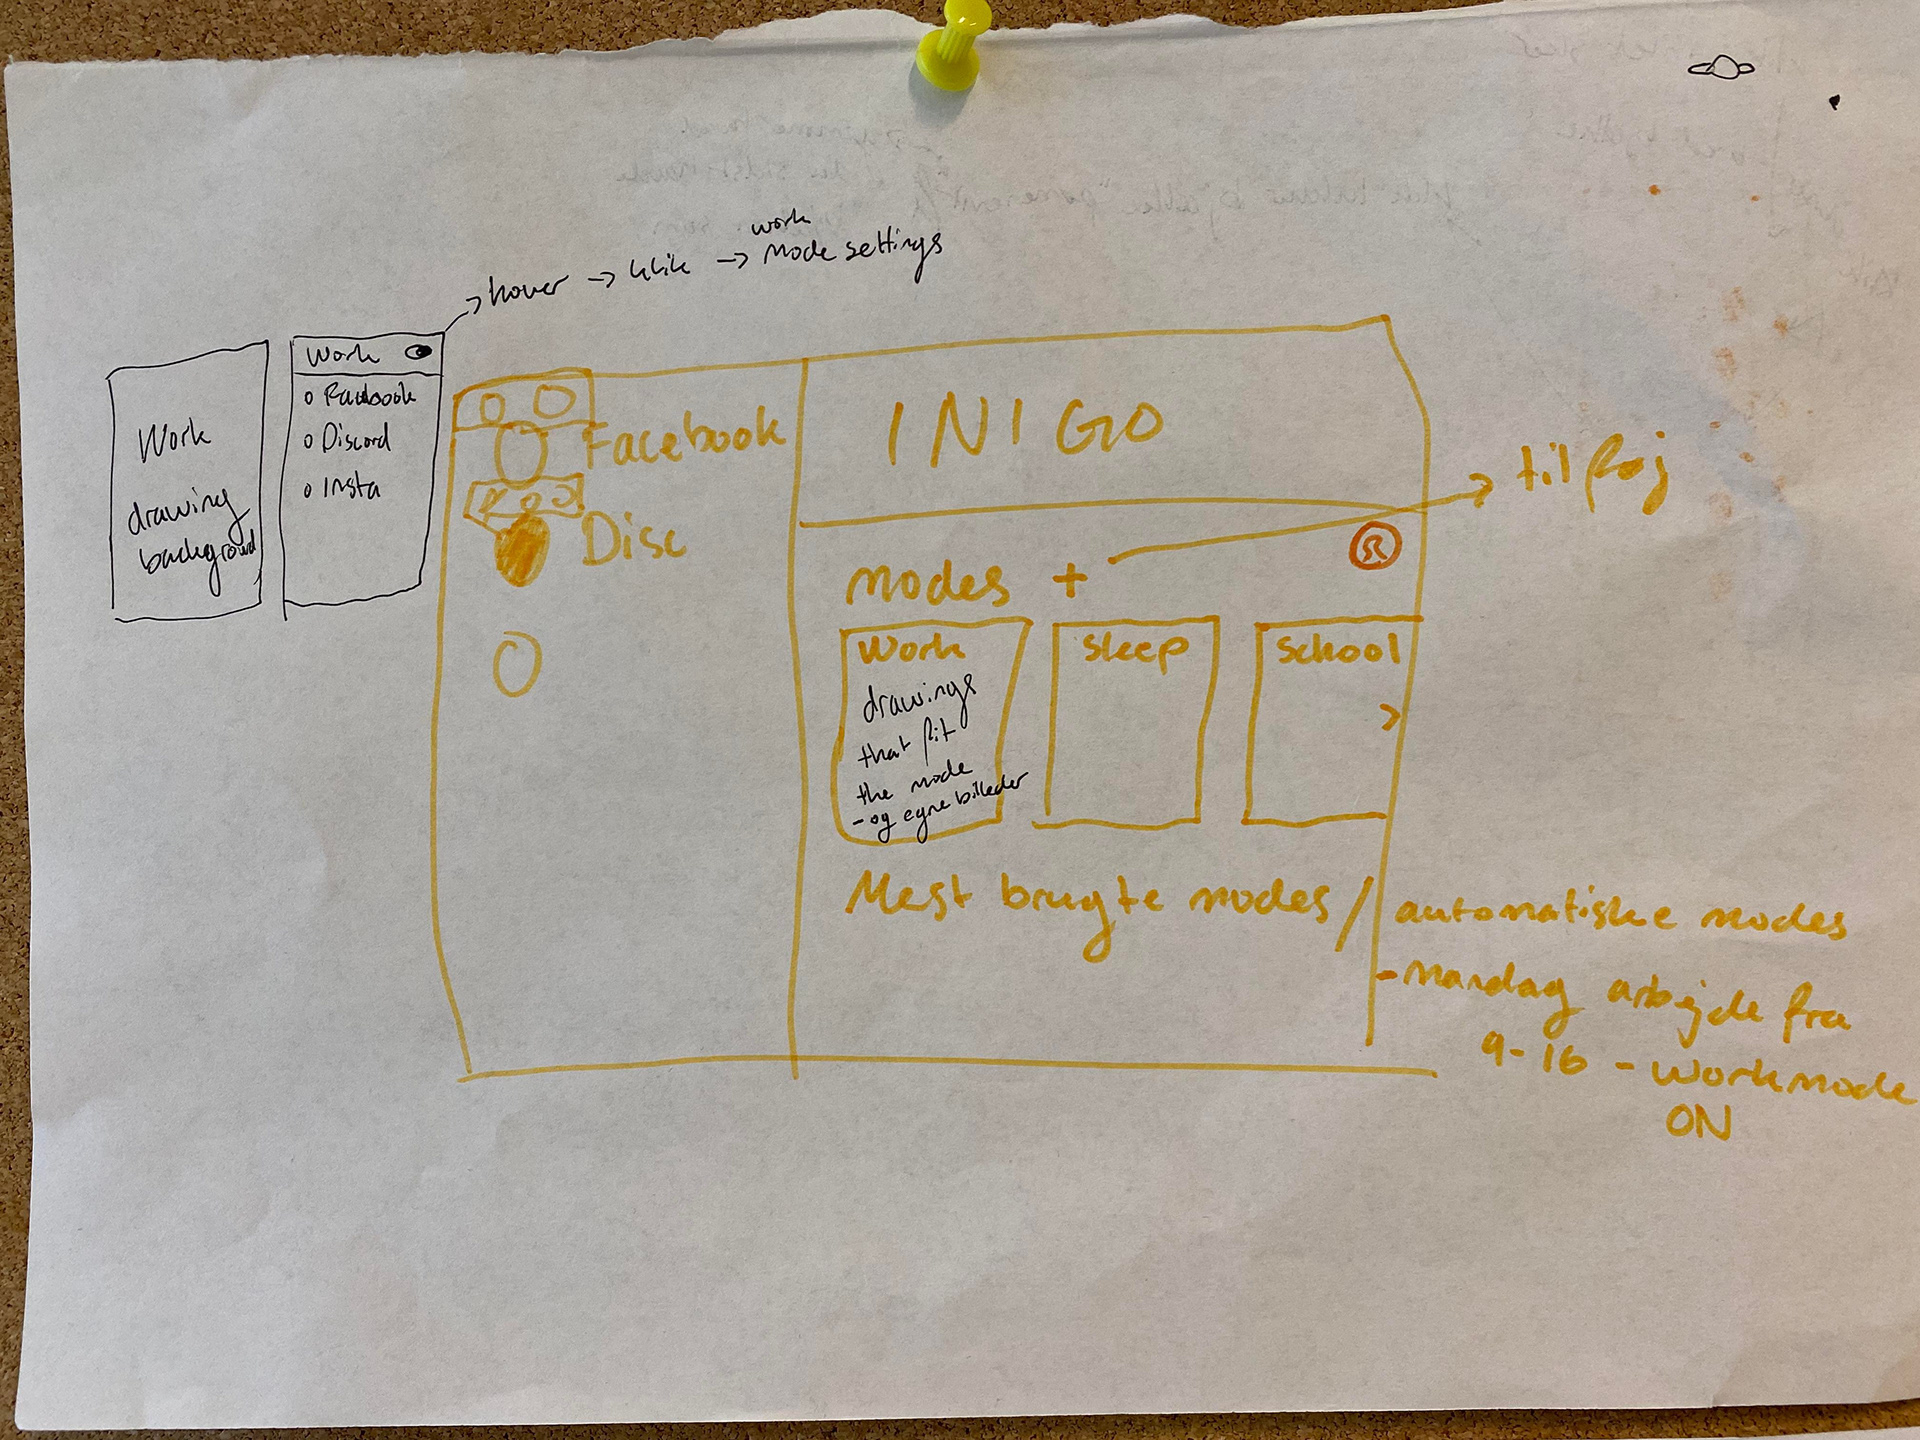 work
hover → klik → mode settings
Work
drawing
background
Work
Facebook
Discord
Insta
Facebook
Disc
INIGO
tilføj
modes +
R
Work
drawings
that fit
the mode
- og egne billeder
Sleep
School
>
Mest brugte modes / automatiske modes
- mandag arbejde fra
9-16 - workmode
ON